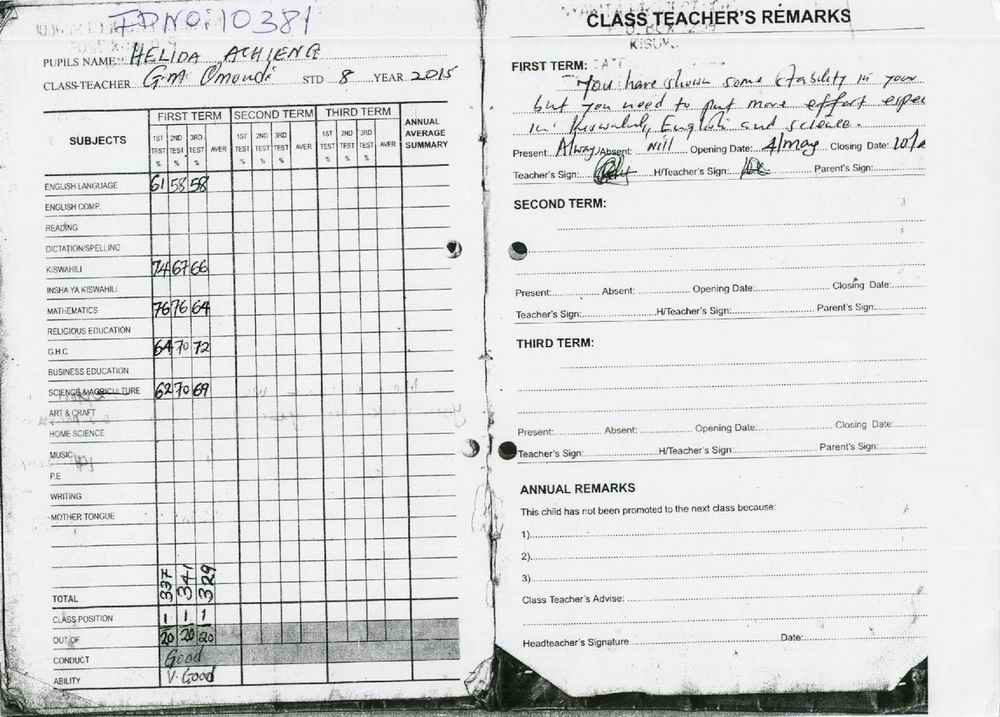 IDNO: 10381
PUPILS NAME: HELIDA ACHIENG
CLASS-TEACHER G.M. Omondi STD 8 YEAR 2015
SUBJECTS FIRST TERM SECOND TERM THIRD TERM ANNUAL AVERAGE SUMMARY
1ST TEST % 2ND TEST % 3RD TEST % AVER 1ST TEST % 2ND TEST % 3RD TEST % AVER 1ST TEST % 2ND TEST % 3RD TEST % AVER
ENGLISH LANGUAGE 61 58 58
ENGLISH COMP.
READING
DICTATION/SPELLING
KISWAHILI 74 67 66
INSHA YA KISWAHILI
MATHEMATICS 76 76 64
RELIGIOUS EDUCATION
G.H.C 64 70 72
BUSINESS EDUCATION
SCIENCE & AGRICULTURE 62 70 69
ART & CRAFT
HOME SCIENCE
MUSIC
P.E
WRITING
MOTHER TONGUE
TOTAL 337 341 329
CLASS POSITION 1 1 1
OUT OF 20 20 20
CONDUCT Good
ABILITY V. Good
CLASS TEACHER'S REMARKS
KISUM
FIRST TERM:
You have shown some stability in your
but you need to put more effort espec
in: Kiswahili, English and science.
Present: Always Absent: Nill Opening Date: 4/may Closing Date:
Teacher's Sign: H/Teacher's Sign: Parent's Sign:
SECOND TERM:
Present: Absent: Opening Date: Closing Date:
Teacher's Sign: H/Teacher's Sign: Parent's Sign:
THIRD TERM:
Present: Absent: Opening Date: Closing Date:
Teacher's Sign: H/Teacher's Sign: Parent's Sign:
ANNUAL REMARKS
This child has not been promoted to the next class because:
1)
2)
3)
Class Teacher's Advise:
Headteacher's Signature Date: